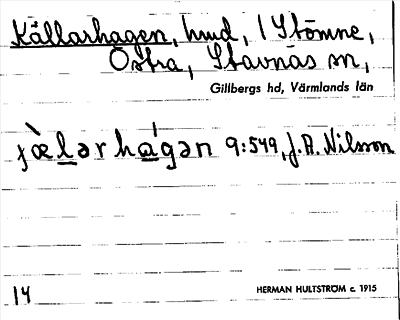 Källarhagen, hmd, i Stömne,
Östra, Stavnäs sn,
Gillbergs hd, Värmlands län
9:549, J. A. Nilsson
14
HERMAN HULTSTRÖM c. 1915